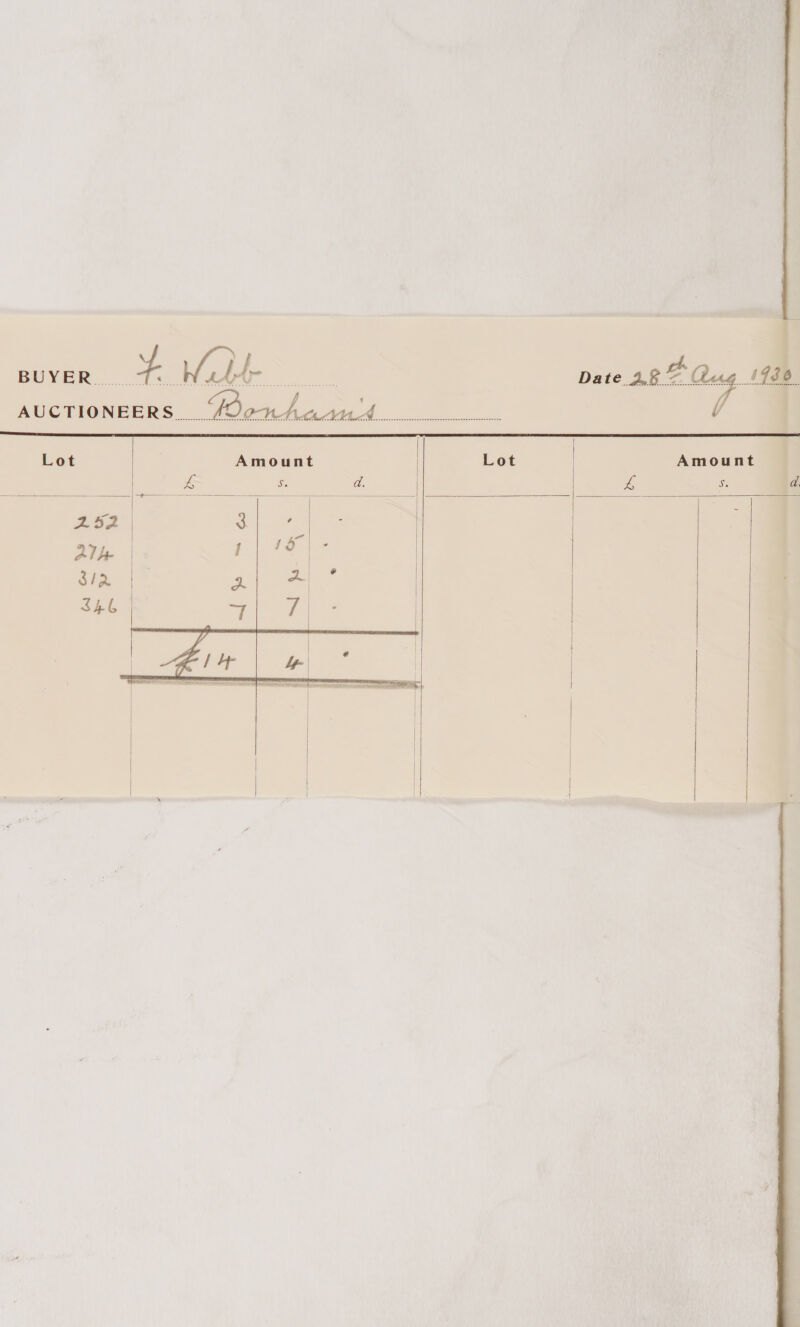 BUYER F. Webb Date 28th Aug 1936
AUCTIONEERS Bonhams
Lot Amount Lot Amount
£ s. d. £ s. d.
252 3 - -
274 1 15 -
312 2 2 -
346 7 7 -
£14 4 -